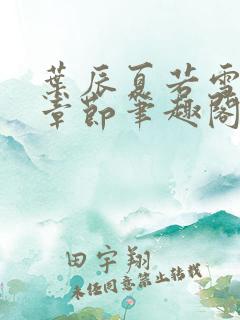 葉辰夏若雪
章節筆趣閣
田宇翔
未经同意禁止转载